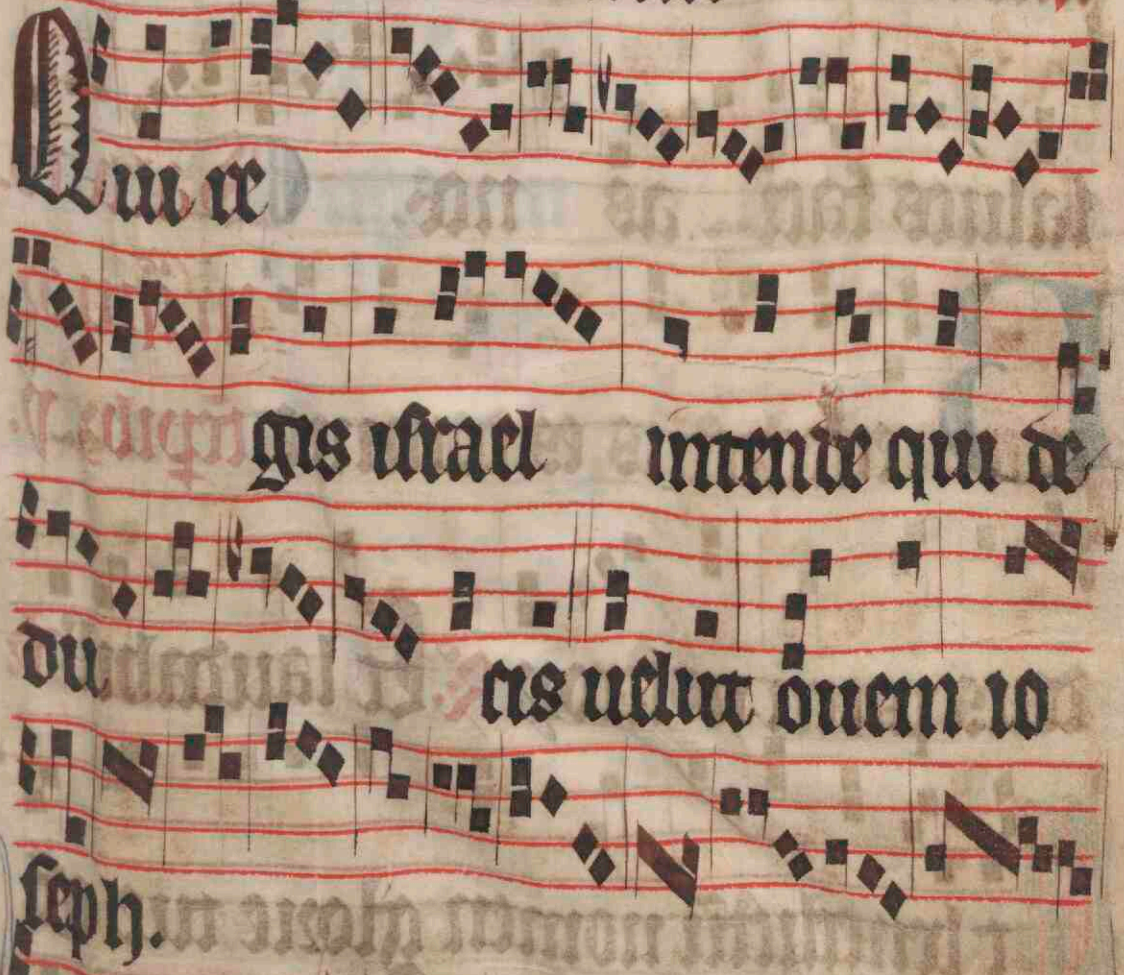 Qui re
gis israel intende qui de
du
cis uelut ouem io
seph.